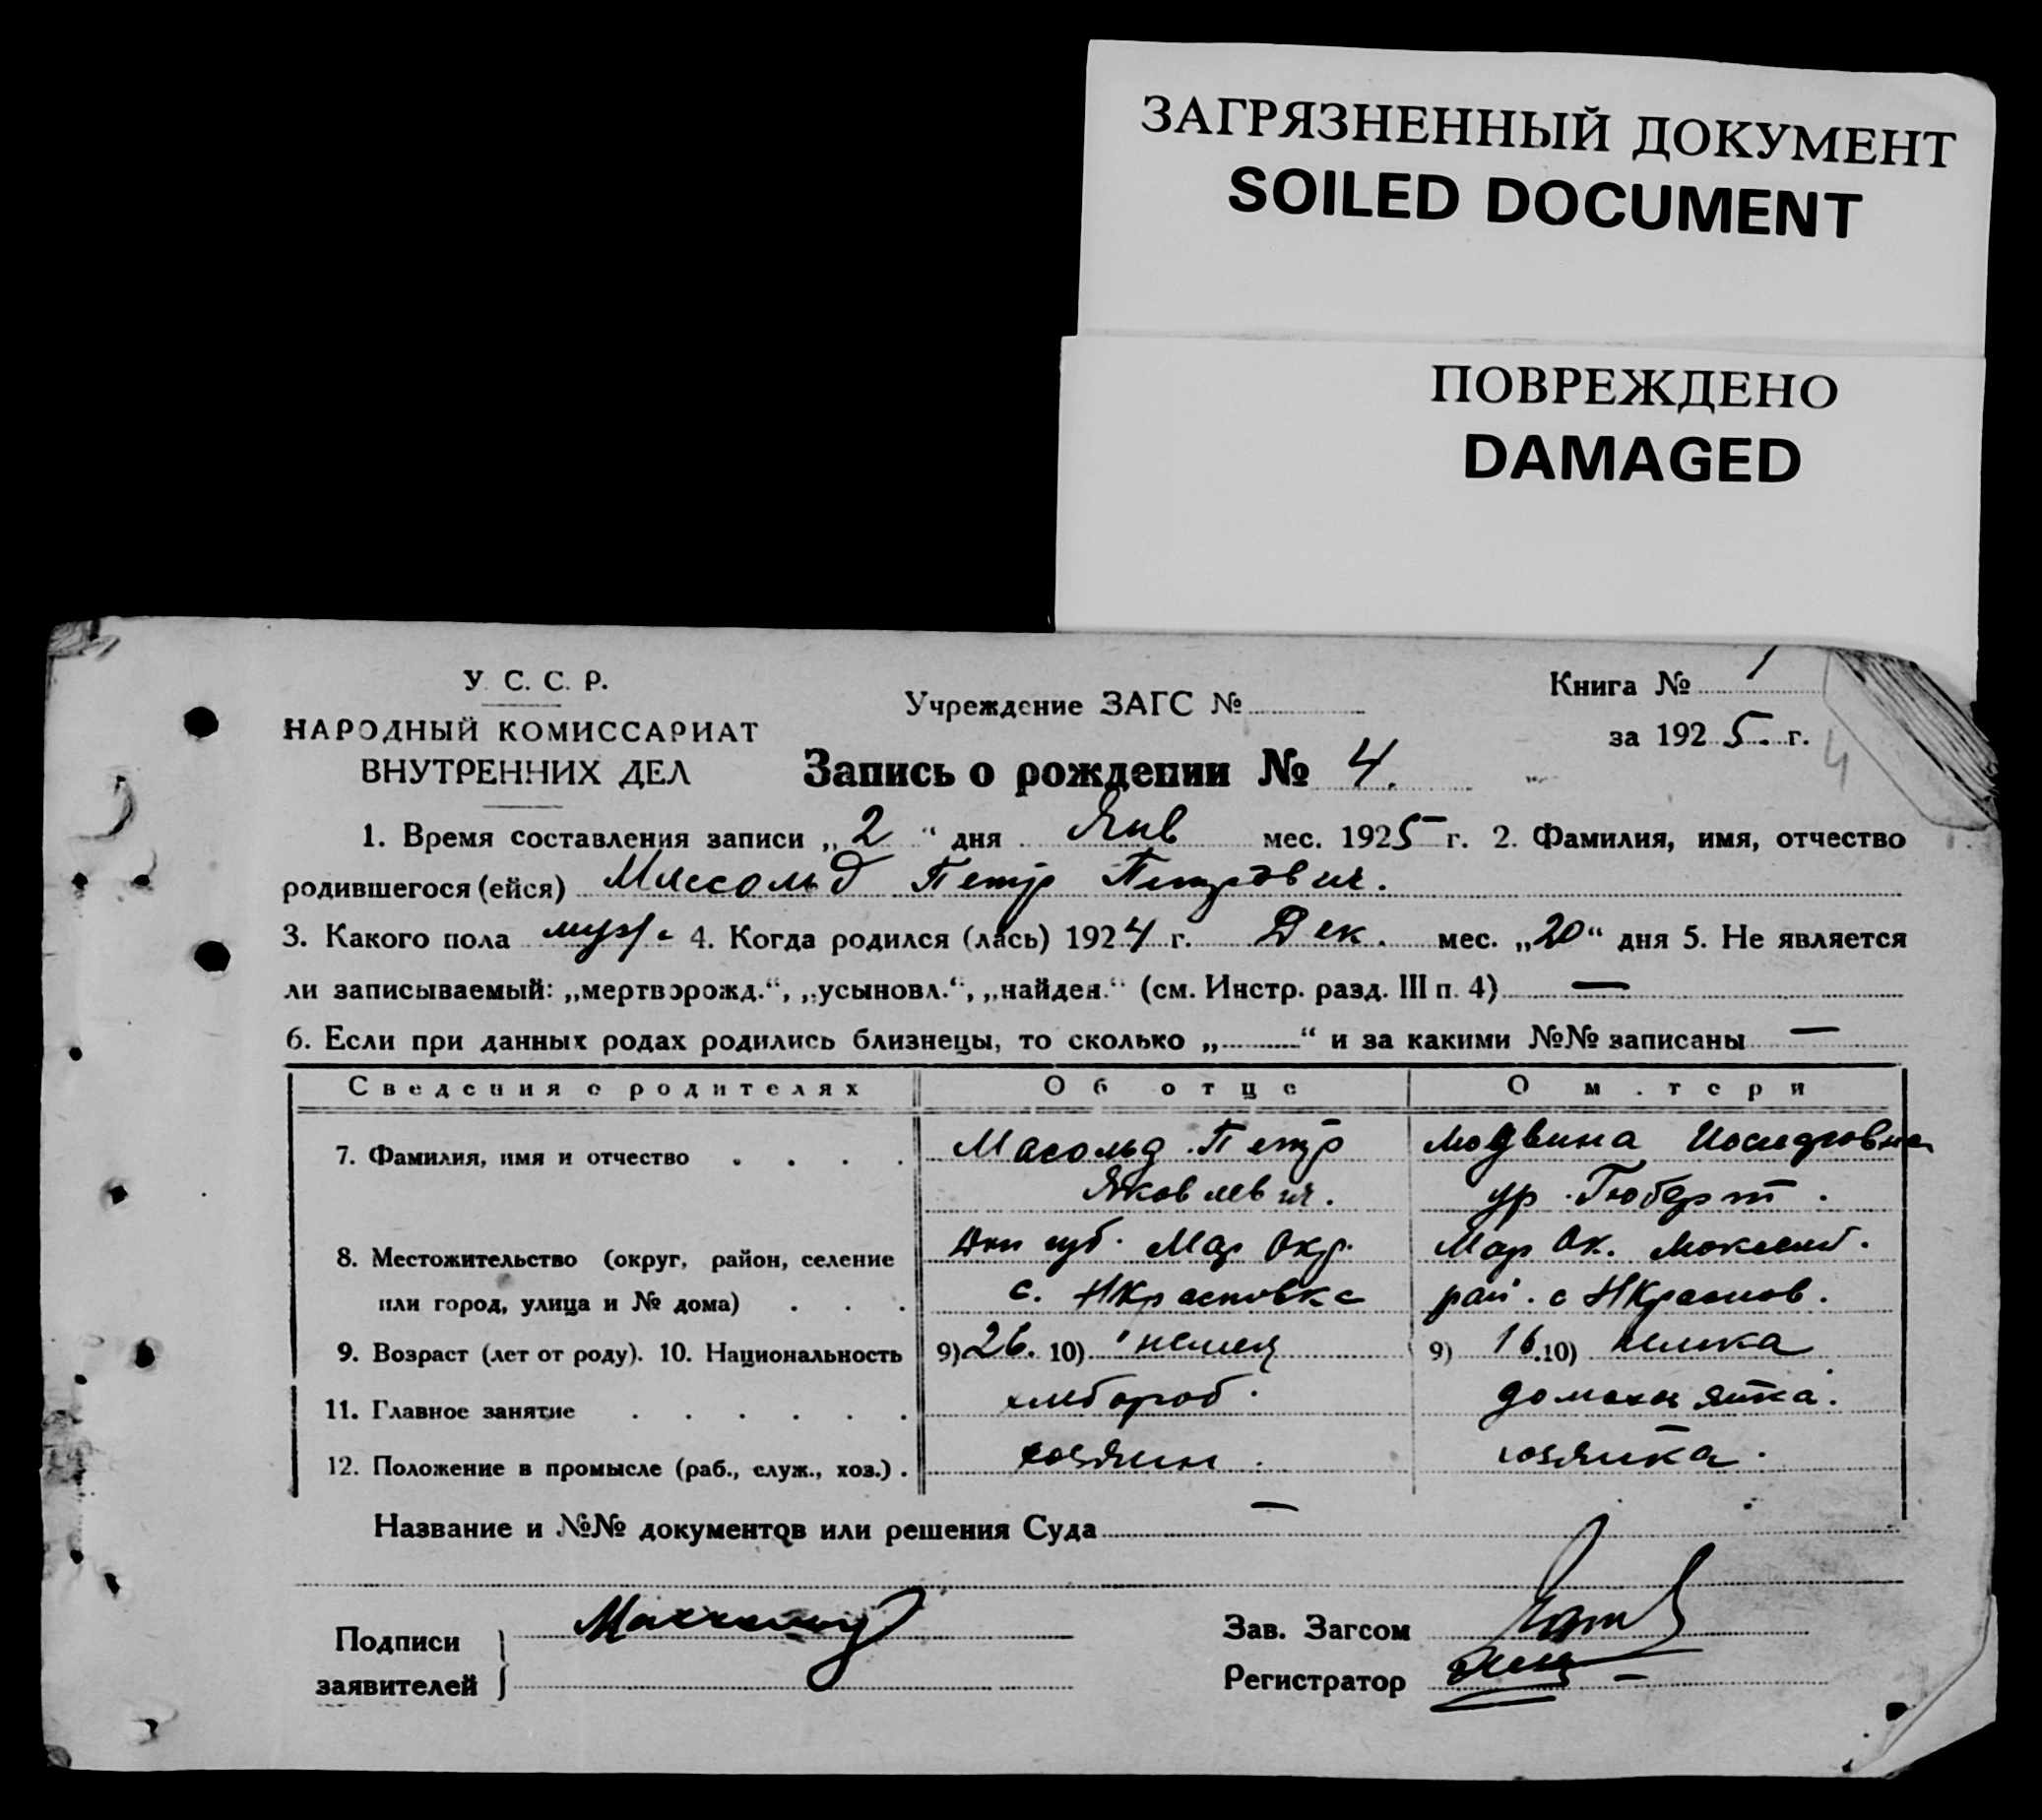 ЗАГРЯЗНЕННЫЙ ДОКУМЕНТ
SOILED DOCUMENT
ПОВРЕЖДЕНО
DAMAGED
У. С. С. Р.
НАРОДНЫЙ КОМИССАРИАТ
ВНУТРЕННИХ ДЕЛ
Учреждение ЗАГС №
Книга № 1
за 1925. г.
4
Запись о рождении № 4.
1. Время составления записи „2“ дня Янв мес. 1925 г. 2. Фамилия, имя, отчество
родившегося (ейся) Массольд Петр Петрович.
3. Какого пола муж. 4. Когда родился (лась) 1924 г. Дек. мес. „20“ дня 5. Не является
ли записываемый: „мертворожд.“, „усыновл.“, „найден.“ (см. Инстр. разд. III п. 4) —
6. Если при данных родах родились близнецы, то сколько „ “ и за какими №№ записаны —
Сведения о родителях Об отце О м.тери
7. Фамилия, имя и отчество Масольд Петр Людвина
Яковлевич. ур. Гюберт.
8. Местожительство (округ, район, селение Мар Окр. Мар Ок.
или город, улица и № дома) с. НКрасновка рай. с НКраснов.
9. Возраст (лет от роду). 10. Национальность 9) 26. 10) немец 9) 16. 10) немка
11. Главное занятие хлебороб. домохозяйка.
12. Положение в промысле (раб., служ., хоз.) хозяин. хозяйка.
Название и №№ документов или решения Суда —
Подписи
заявителей
Зав. Загсом
Регистратор